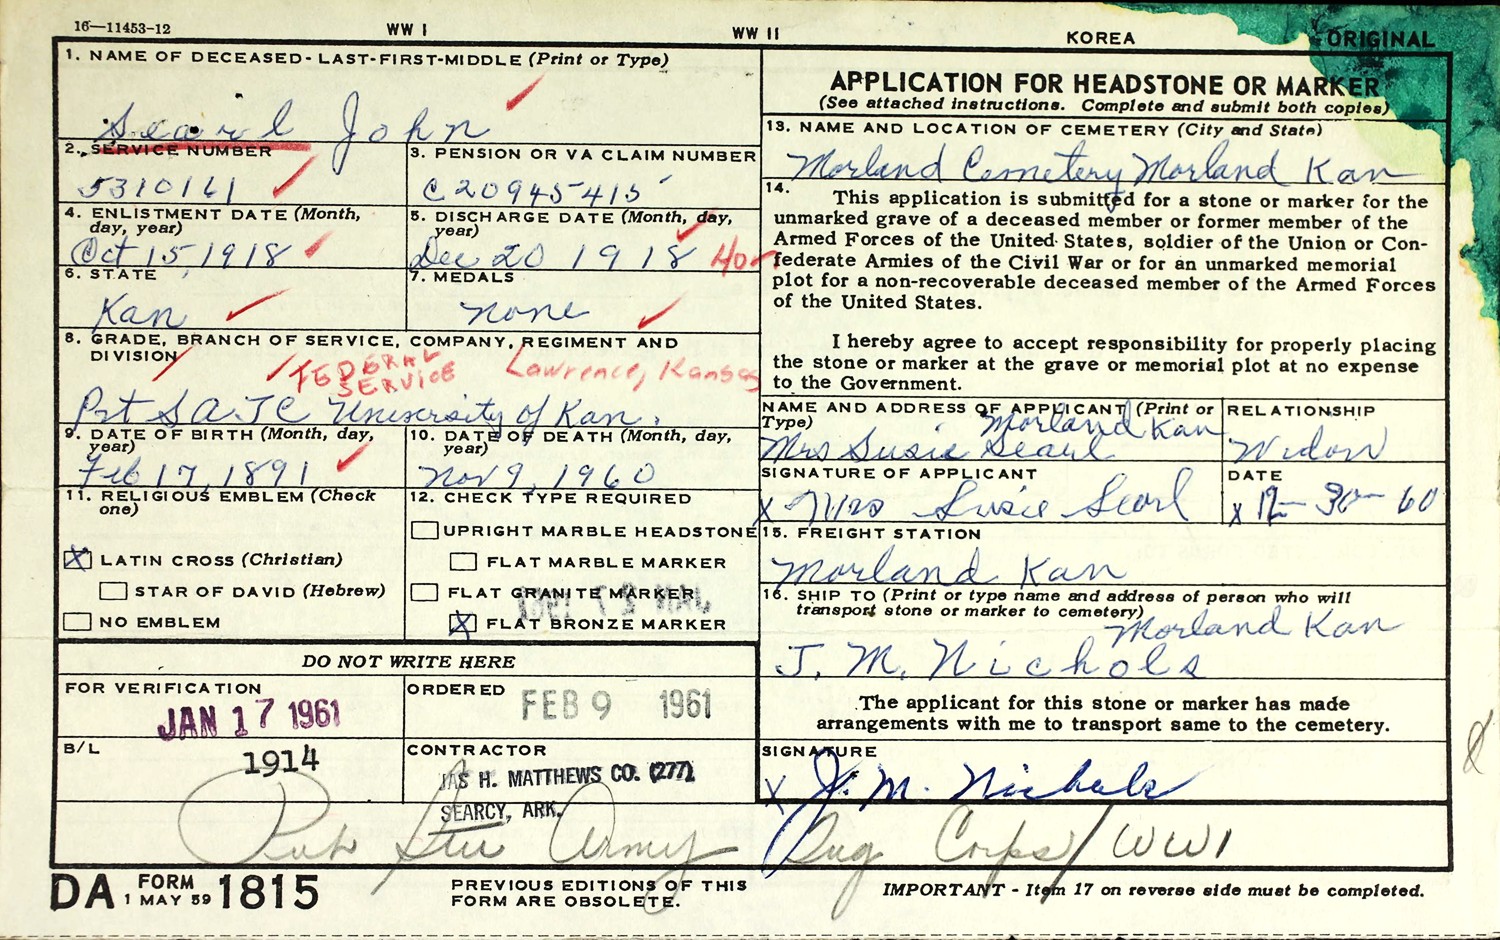 16—11453-12
WW I
WW II
KOREA
ORIGINAL
1. NAME OF DECEASED - LAST-FIRST-MIDDLE (Print or Type)
Searl John
2. SERVICE NUMBER
5310161
3. PENSION OR VA CLAIM NUMBER
C20945415
4. ENLISTMENT DATE (Month,
day, year)
Oct 15 1918
5. DISCHARGE DATE (Month, day,
year)
Dec 20 1918 Hon
6. STATE
Kan
7. MEDALS
none
8. GRADE, BRANCH OF SERVICE, COMPANY, REGIMENT AND
DIVISION
FEDERAL
SERVICE
Lawrence, Kansas
Pvt SATC University of Kan.
9. DATE OF BIRTH (Month, day,
year)
Feb 17, 1891
10. DATE OF DEATH (Month, day,
year)
Nov 9, 1960
11. RELIGIOUS EMBLEM (Check
one)
X LATIN CROSS (Christian)
STAR OF DAVID (Hebrew)
NO EMBLEM
12. CHECK TYPE REQUIRED
UPRIGHT MARBLE HEADSTONE
FLAT MARBLE MARKER
FLAT GRANITE MARKER
X FLAT BRONZE MARKER
DO NOT WRITE HERE
FOR VERIFICATION
JAN 17 1961
ORDERED
FEB 9 1961
B/L
1914
CONTRACTOR
JAS H. MATTHEWS CO. (277)
SEARCY, ARK.
APPLICATION FOR HEADSTONE OR MARKER
(See attached instructions. Complete and submit both copies)
13. NAME AND LOCATION OF CEMETERY (City and State)
Morland Cemetery Morland Kan
14.
This application is submitted for a stone or marker for the
unmarked grave of a deceased member or former member of the
Armed Forces of the United States, soldier of the Union or Con-
federate Armies of the Civil War or for an unmarked memorial
plot for a non-recoverable deceased member of the Armed Forces
of the United States.
I hereby agree to accept responsibility for properly placing
the stone or marker at the grave or memorial plot at no expense
to the Government.
NAME AND ADDRESS OF APPLICANT (Print or
Type)
Morland Kan
Mrs Susie Searl
RELATIONSHIP
Widow
SIGNATURE OF APPLICANT
X Mrs Susie Searl
DATE
X 12-30-60
15. FREIGHT STATION
Morland Kan
16. SHIP TO (Print or type name and address of person who will
transport stone or marker to cemetery)
Morland Kan
J. M. Nichols
The applicant for this stone or marker has made
arrangements with me to transport same to the cemetery.
SIGNATURE
X J. M. Nichols
Army Corps/WW1
DA FORM 1815
1 MAY 59
PREVIOUS EDITIONS OF THIS
FORM ARE OBSOLETE.
IMPORTANT - Item 17 on reverse side must be completed.